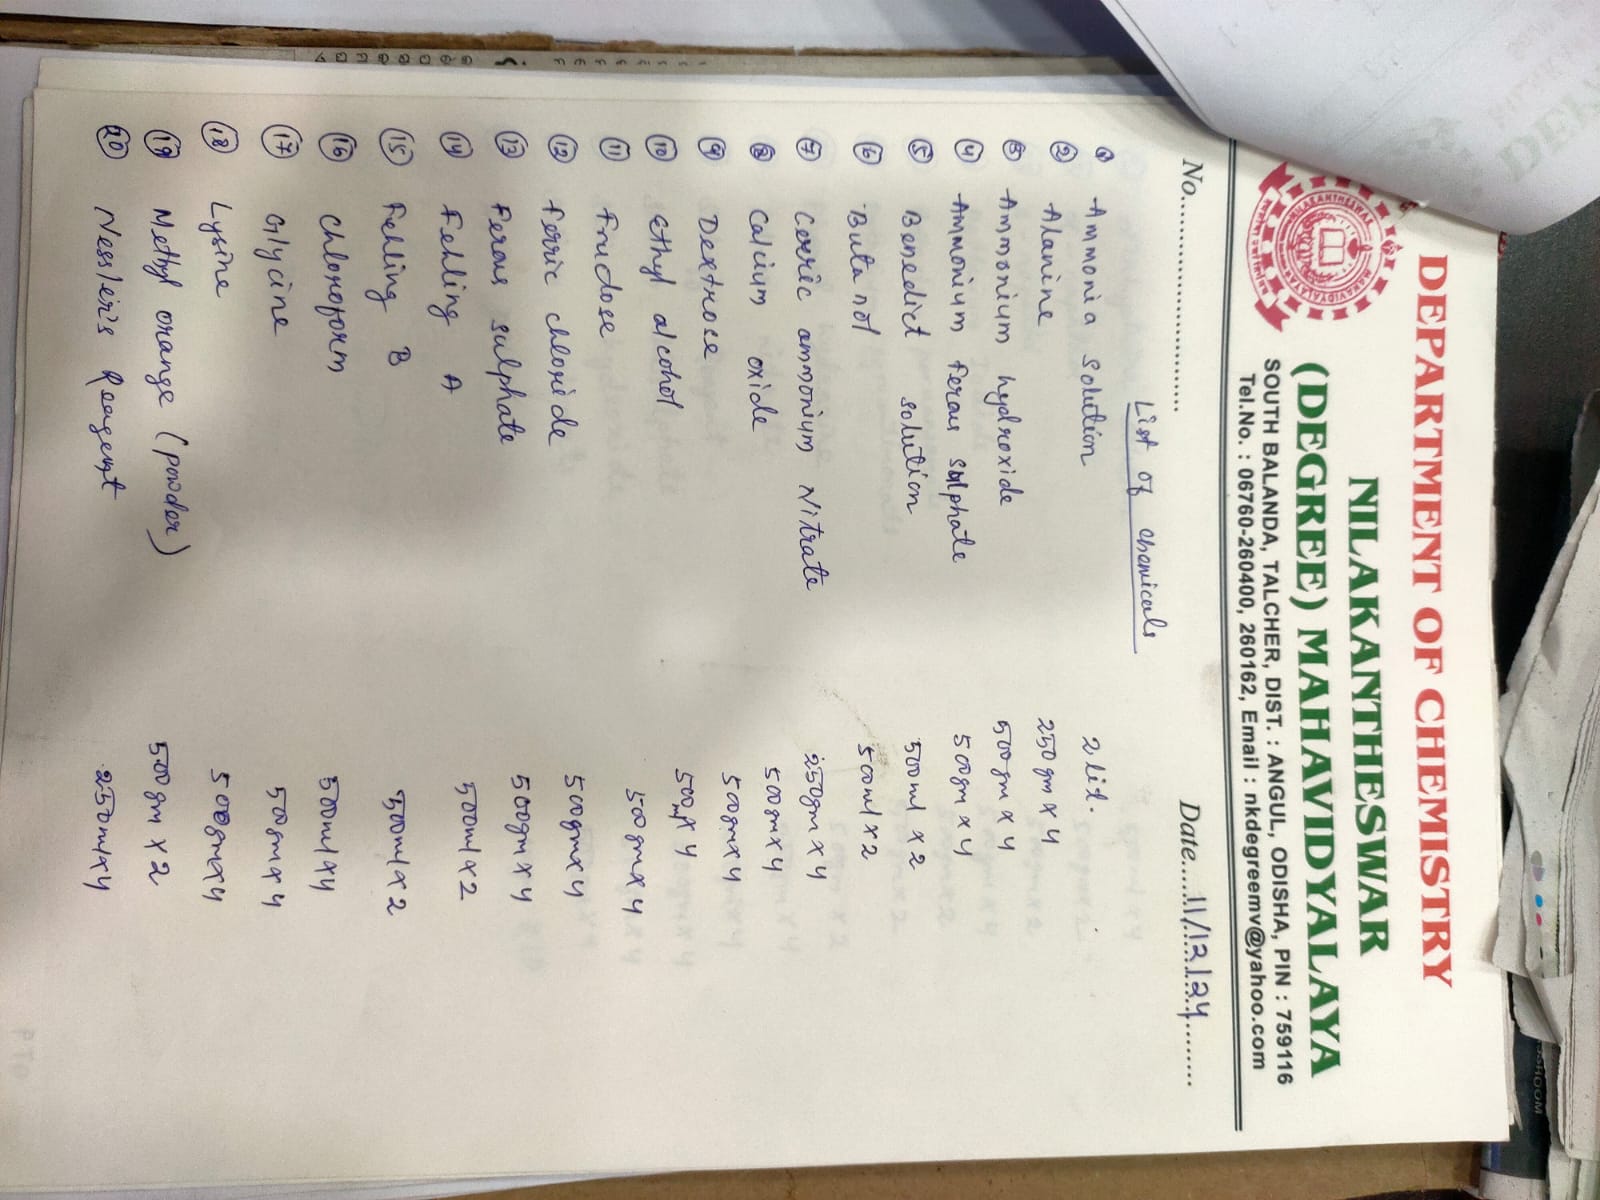 DEPARTMENT OF CHEMISTRY
NILAKANTHESWAR
(DEGREE) MAHAVIDYALAYA
SOUTH BALANDA, TALCHER, DIST. : ANGUL, ODISHA, PIN : 759116
Tel.No. : 06760-260400, 260162, Email : nkdegreemv@yahoo.com
No............................ Date.....11/12/24..........
List of chemicals
① Ammonia solution 2 lit.
② Alanine 250 gm x 4
③ Ammonium hydroxide 500gm x 4
④ Ammonium ferous sulphate 500gm x 4
⑤ Benedict solution 500ml x 2
⑥ Butanol 500ml x 2
⑦ Cerric ammonium Nitrate 250gm x 4
⑧ Calcium oxide 500gm x 4
⑨ Dextrose 500gm x 4
⑩ Ethyl alcohol 500ml x 4
⑪ Frudose 500gm x 4
⑫ Ferric chloride 500gm x 4
⑬ Ferous sulphate 500gm x 4
⑭ Fehling A 500ml x 2
⑮ Fehling B 500ml x 2
⑯ Chloroform 500ml x 4
⑰ Glycine 500gm x 4
⑱ Lysine 500gm x 4
⑲ Methyl orange (powder) 500gm x 2
⑳ Nessler's Reagent 250ml x 4
PTO